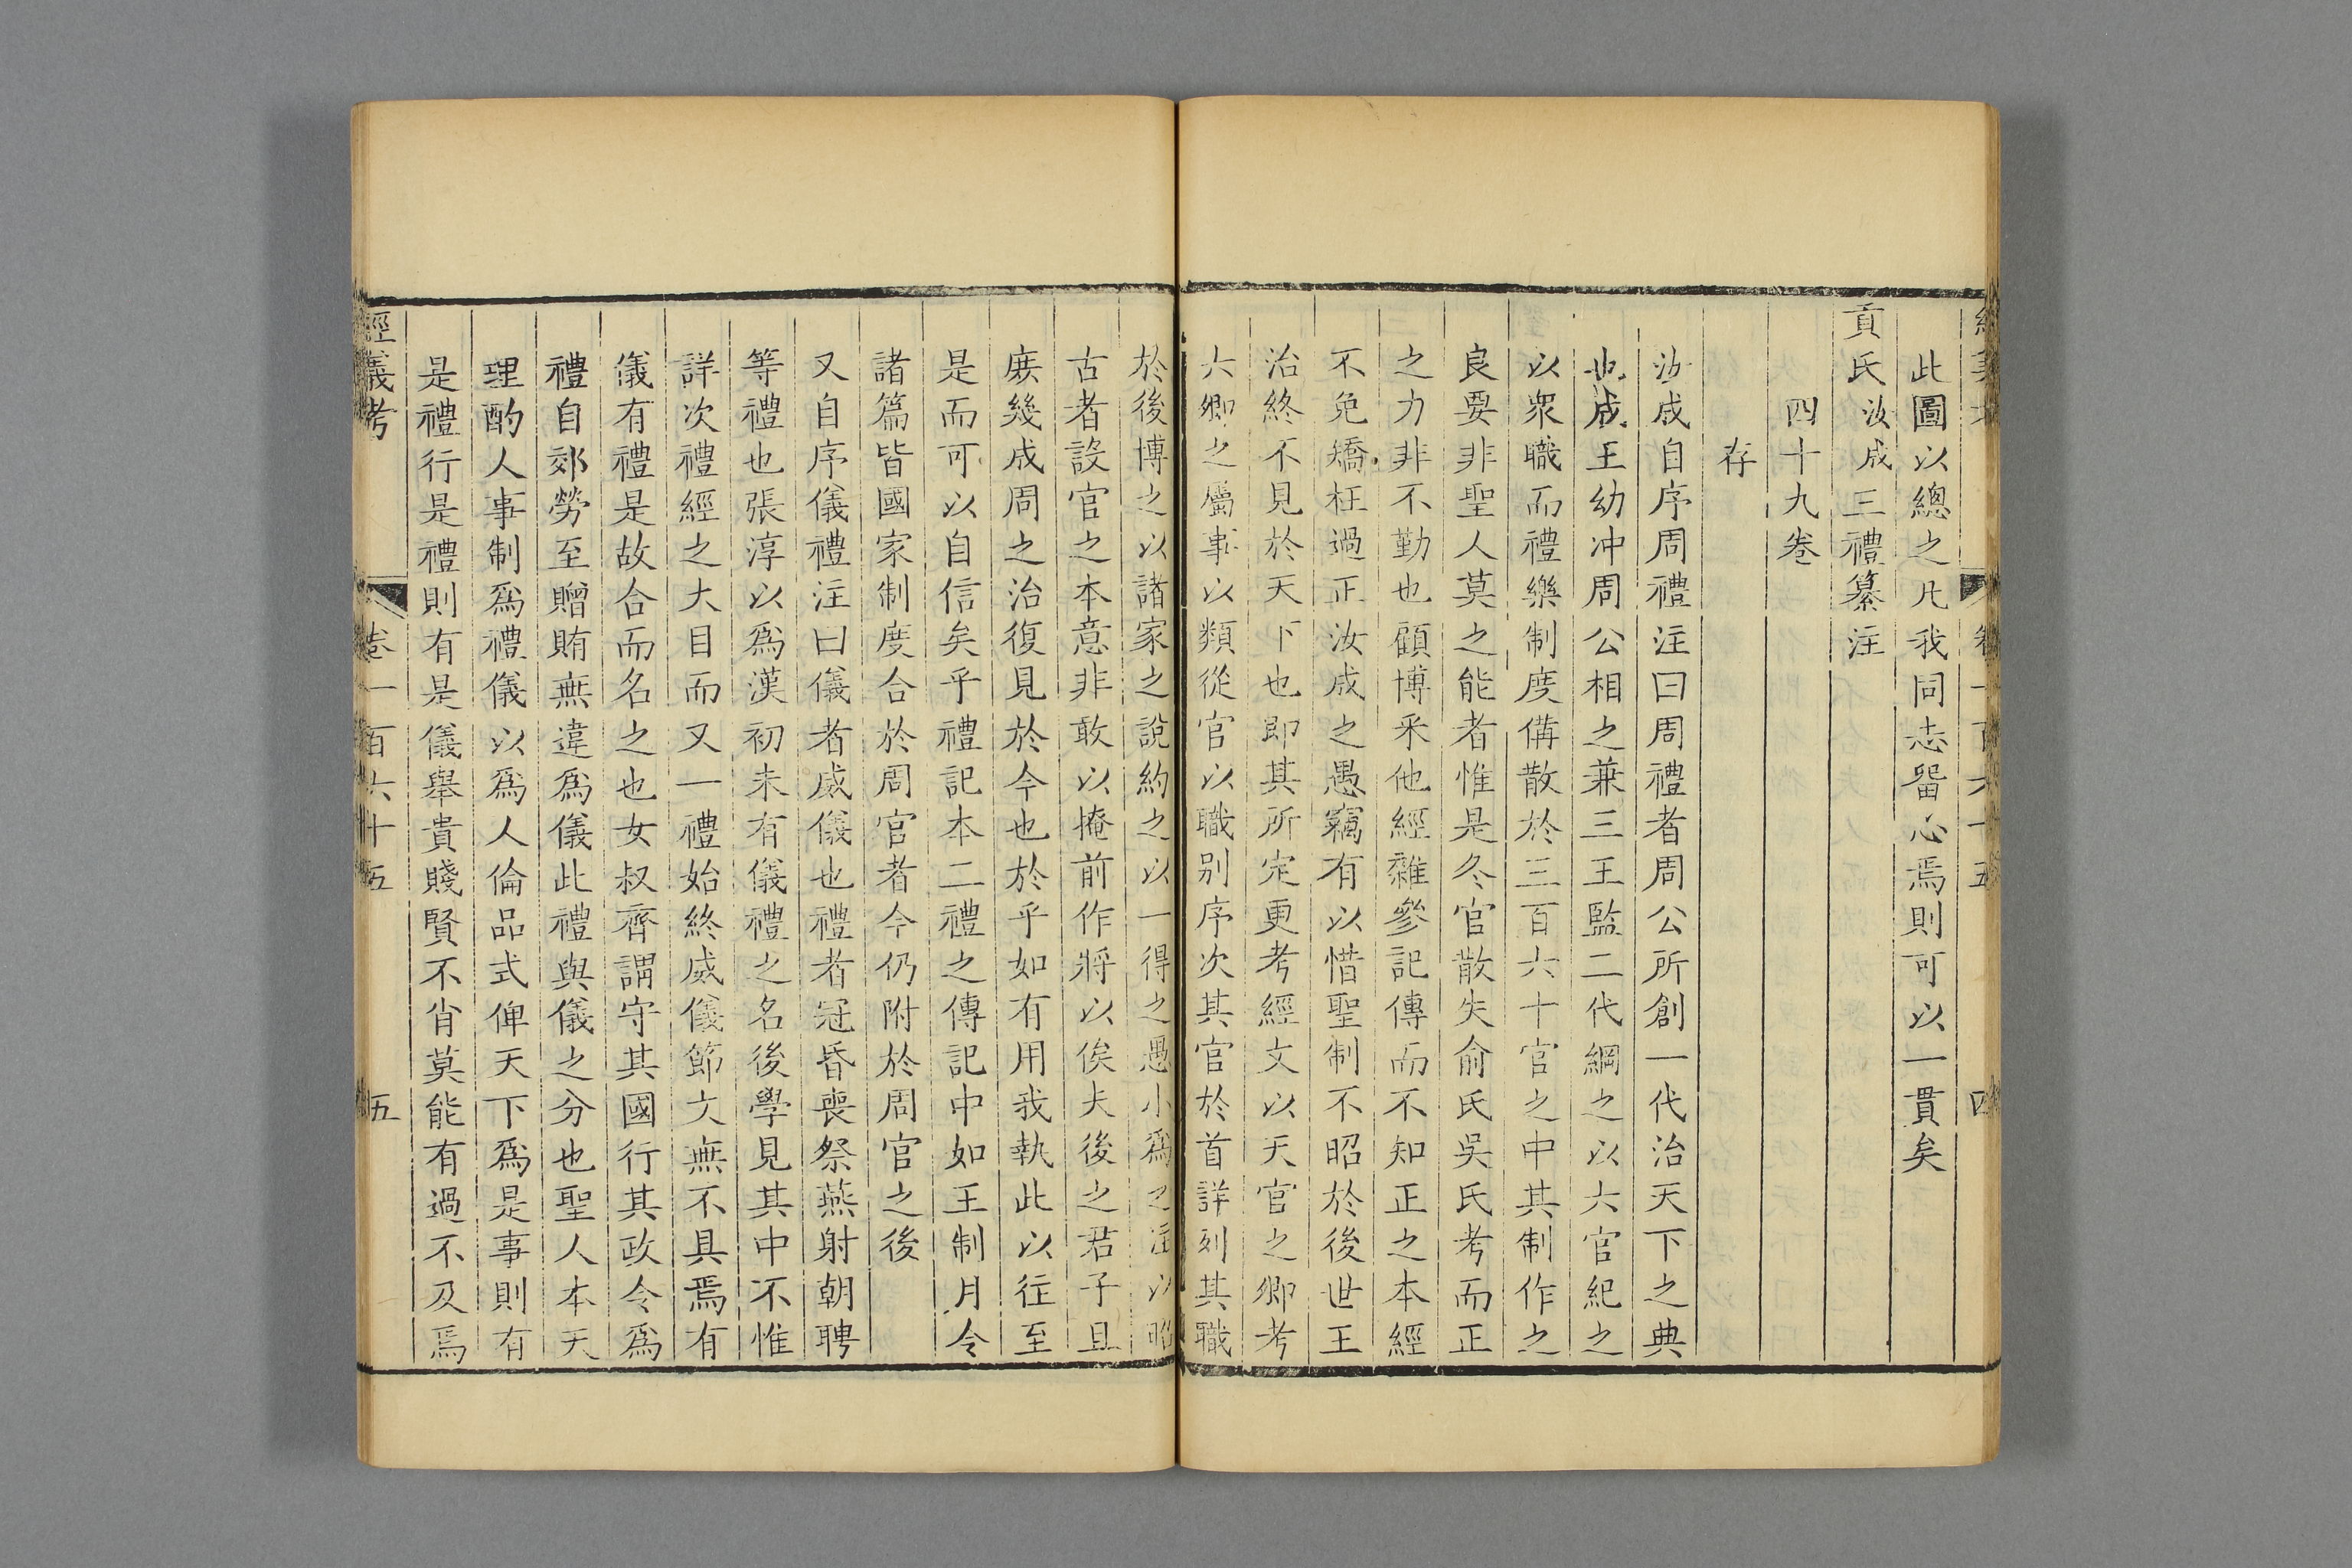 此圖以總之凡我同志留心焉則可以一貫矣
貢氏汝成三禮纂注
四十九卷
存
汝成自序周禮注曰周禮者周公所創一代治天下之典
也成王幼冲周公相之兼三王監二代綱之以六官紀之
以衆職而禮樂制度備散於三百六十官之中其制作之
良要非聖人莫之能者惟是冬官散失俞氏吳氏考而正
之力非不勤也顧博采他經雜參記傳而不知正之本經
不免矯枉過正汝成之愚竊有以惜聖制不昭於後世王
治終不見於天下也即其所定更考經文以天官之卿考
六卿之屬事以類從官以職别序次其官於首詳列其職
於後博之以諸家之說約之以一得之愚小爲之注以昭
古者設官之本意非敢以掩前作將以俟夫後之君子且
庻幾成周之治復見於今也於乎如有用我執此以往至
是而可以自信矣乎禮記本二禮之傳記中如王制月令
諸篇皆國家制度合於周官者今仍附於周官之後
又自序儀禮注曰儀者威儀也禮者冠昏喪祭燕射朝聘
等禮也張淳以爲漢初未有儀禮之名後學見其中不惟
詳次禮經之大目而又一禮始終威儀節文無不具焉有
儀有禮是故合而名之也女叔齊謂守其國行其政令爲
禮自郊勞至贈賄無違爲儀此禮與儀之分也聖人本天
理酌人事制爲禮儀以爲人倫品式俾天下爲是事則有
是禮行是禮則有是儀舉貴賤賢不肖莫能有過不及焉
經義考
卷一百六十五
五